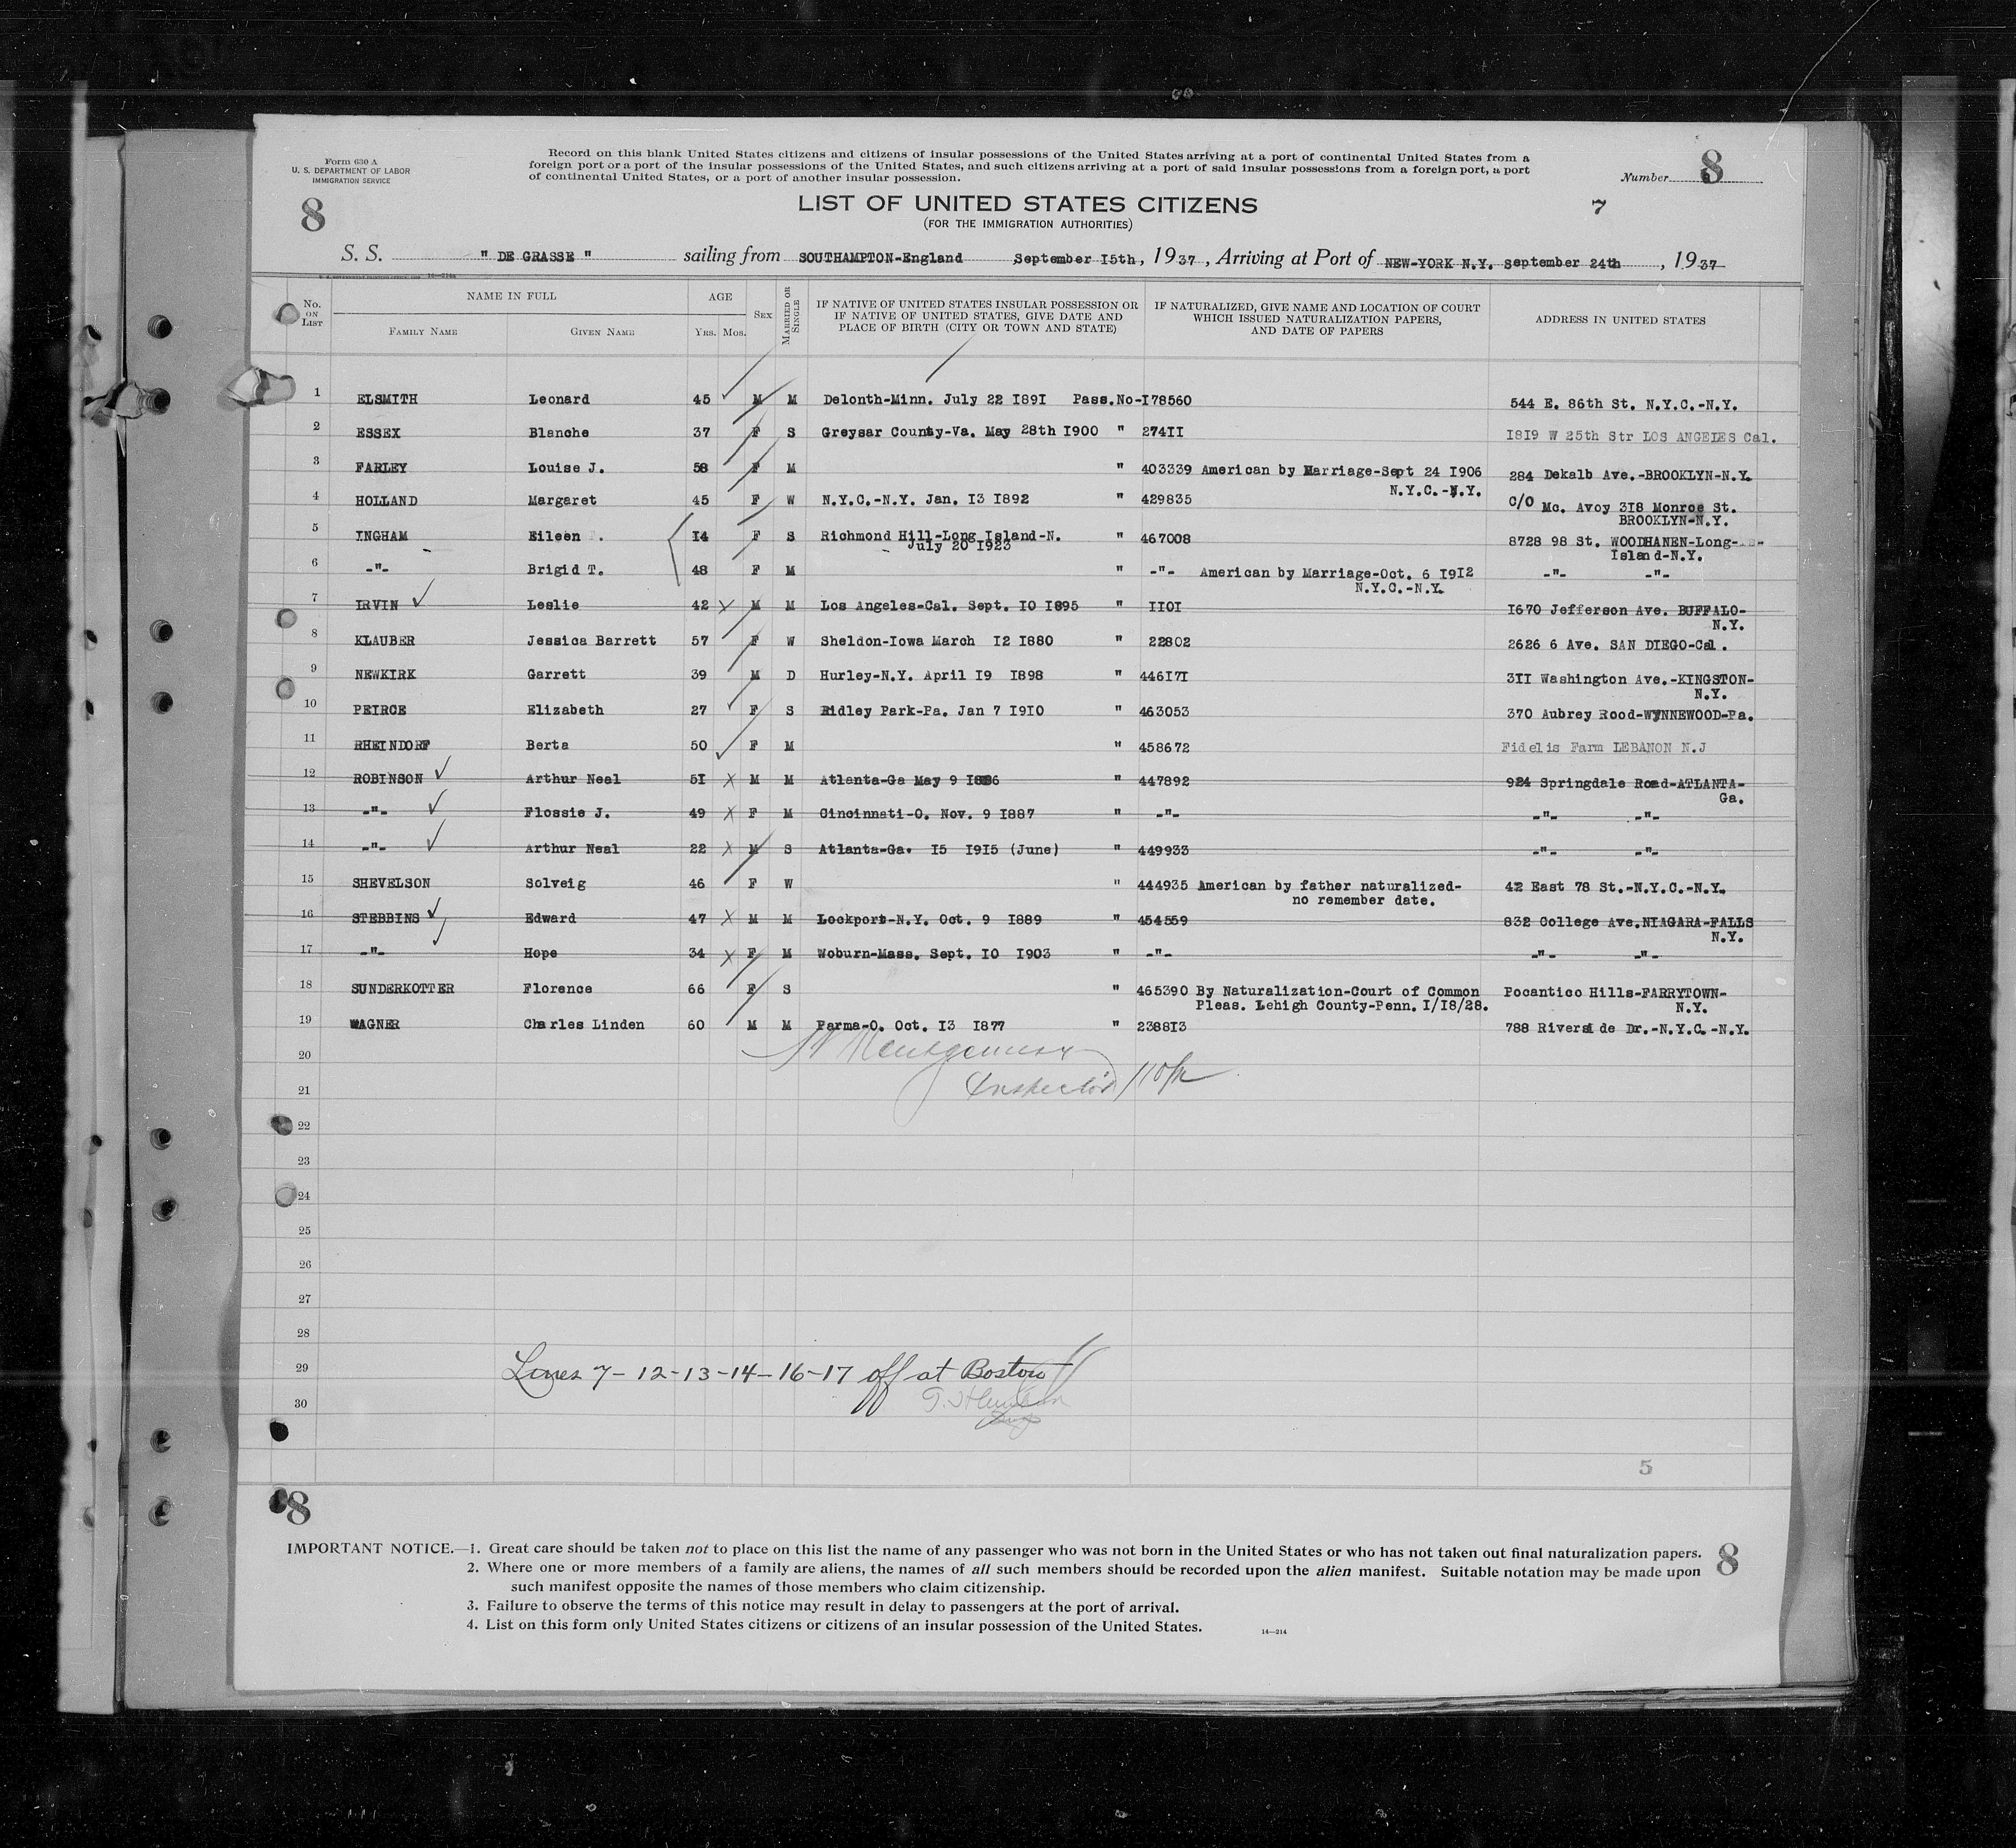 Form 630 A
U. S. DEPARTMENT OF LABOR
IMMIGRATION SERVICE
Record on this blank United States citizens and citizens of insular possessions of the United States arriving at a port of continental United States from a
foreign port or a port of the insular possessions of the United States, and such citizens arriving at a port of said insular possessions from a foreign port, a port
of continental United States, or a port of another insular possession.
Number 8
8
LIST OF UNITED STATES CITIZENS
7
(FOR THE IMMIGRATION AUTHORITIES)
S. S. " DE GRASSE " sailing from SOUTHAMPTON-England September I5th, 1937, Arriving at Port of NEW-YORK N.Y. September 24th, 1937
No. ON LIST
NAME IN FULL
FAMILY NAME GIVEN NAME
AGE
YRS. MOS.
SEX
MARRIED OR SINGLE
IF NATIVE OF UNITED STATES INSULAR POSSESSION OR
IF NATIVE OF UNITED STATES, GIVE DATE AND
PLACE OF BIRTH (CITY OR TOWN AND STATE)
IF NATURALIZED, GIVE NAME AND LOCATION OF COURT
WHICH ISSUED NATURALIZATION PAPERS,
AND DATE OF PAPERS
ADDRESS IN UNITED STATES
1 ELSMITH Leonard 45 M M Delonth-Minn. July 22 I89I Pass.No-I78560 544 E. 86th St. N.Y.C.-N.Y.
2 ESSEX Blanche 37 F S Greysar County-Va. May 28th I900 " 274II I8I9 W 25th Str LOS ANGELES Cal.
3 FARLEY Louise J. 58 F M " 403339 American by Marriage-Sept 24 I906 284 Dekalb Ave.-BROOKLYN-N.Y.
N.Y.C.-N.Y.
4 HOLLAND Margaret 45 F W N.Y.C.-N.Y. Jan. I3 I892 " 429835 C/O Mc. Avoy 3I8 Monroe St.
BROOKLYN-N.Y.
5 INGHAM Eileen . I4 F S Richmond Hill-Long Island-N. " 467008 8728 98 St. WOODHANEN-Long-
July 20 I923 Island-N.Y.
6 -"- Brigid T. 48 F M " -"- American by Marriage-Oct. 6 I9I2 -"- -"-
N.Y.C.-N.Y.
7 IRVIN Leslie 42 M M Los Angeles-Cal. Sept. IO I895 " IIOI I670 Jefferson Ave. BUFFALO-
N.Y.
8 KLAUBER Jessica Barrett 57 F W Sheldon-Iowa March I2 I880 " 22802 2626 6 Ave. SAN DIEGO-Cal.
9 NEWKIRK Garrett 39 M D Hurley-N.Y. April I9 I898 " 446I7I 3II Washington Ave.-KINGSTON-
N.Y.
10 PEIRCE Elizabeth 27 F S Ridley Park-Pa. Jan 7 I9I0 " 463053 370 Aubrey Rood-WYNNEWOOD-Pa.
11 RHEINDORF Berta 50 F M " 458672 Fidelis Farm LEBANON N.J
12 ROBINSON Arthur Neal 5I M M Atlanta-Ga May 9 I886 " 447892 924 Springdale Road-ATLANTA-
Ga.
13 -"- Flossie J. 49 F M Cincinnati-O. Nov. 9 I887 " -"- -"- -"-
14 -"- Arthur Neal 22 M S Atlanta-Ga. I5 I9I5 (June) " 449933 -"- -"-
15 SHEVELSON Solveig 46 F W " 444935 American by father naturalized- 42 East 78 St.-N.Y.C.-N.Y.
no remember date.
16 STEBBINS Edward 47 M M Lockport-N.Y. Oct. 9 I889 " 454559 832 College Ave.NIAGARA-FALLS
N.Y.
17 -"- Hope 34 F M Woburn-Mass. Sept. IO I903 " -"- -"- -"-
18 SUNDERKOTTER Florence 66 F S " 465390 By Naturalization-Court of Common Pocantico Hills-FARRYTOWN-
Pleas. Lehigh County-Penn. I/I8/28. N.Y.
19 WAGNER Charles Linden 60 M M Parma-O. Oct. I3 I877 " 2388I3 788 Riverside Dr.-N.Y.C.-N.Y.
20 Montgomery
21 Inspector
22
23
24
25
26
27
28
29 Lines 7-12-13-14-16-17 off at Boston
30
5
8
IMPORTANT NOTICE.—1. Great care should be taken not to place on this list the name of any passenger who was not born in the United States or who has not taken out final naturalization papers.
8
2. Where one or more members of a family are aliens, the names of all such members should be recorded upon the alien manifest. Suitable notation may be made upon
such manifest opposite the names of those members who claim citizenship.
3. Failure to observe the terms of this notice may result in delay to passengers at the port of arrival.
4. List on this form only United States citizens or citizens of an insular possession of the United States.
14—214